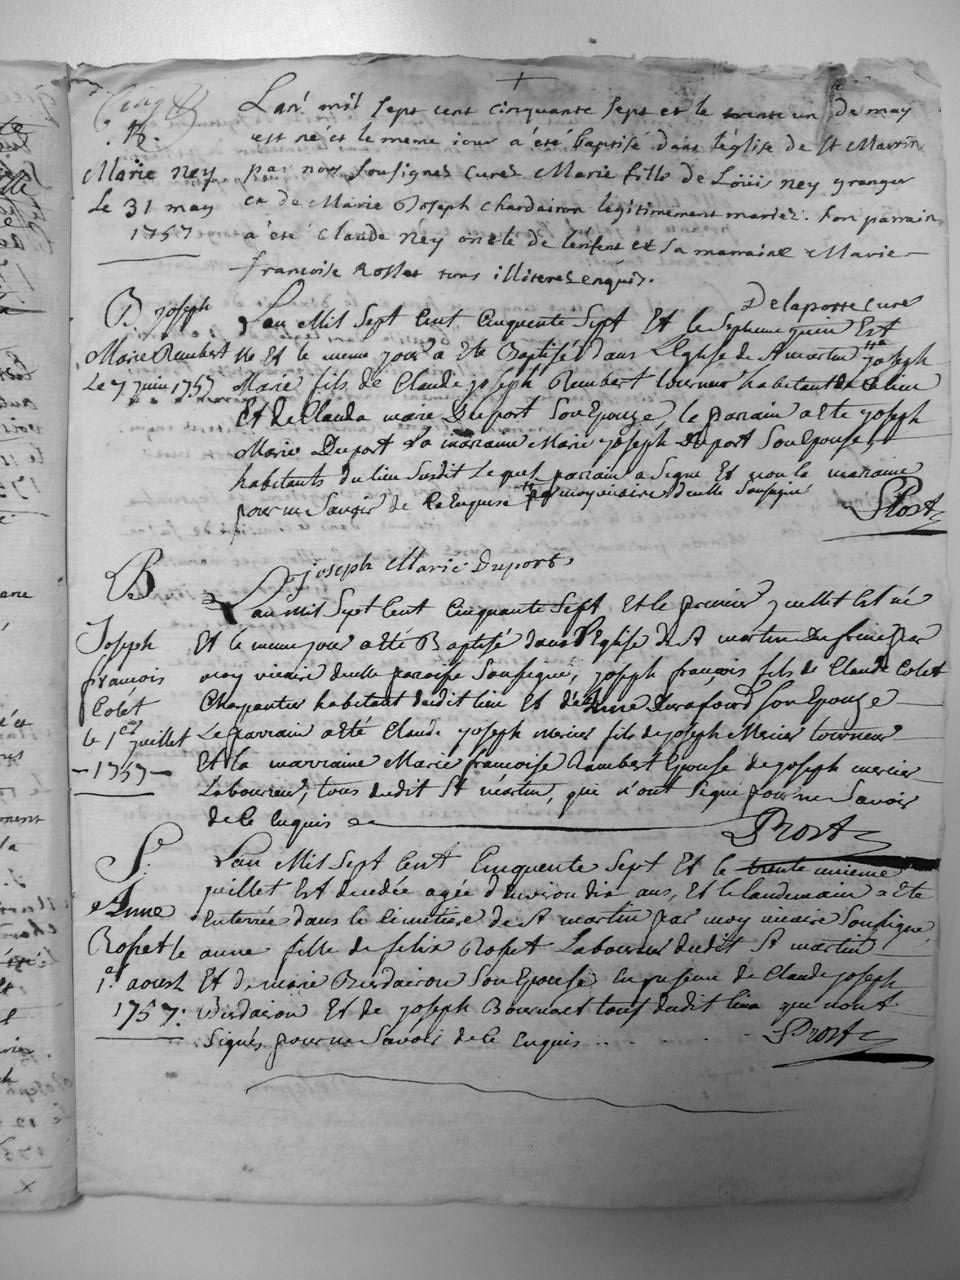 B.
Marie ney
Le 31 may
1757
Lan mil sept cent cinquante sept et le trente un de may
est né et le meme iour a été baptisé dans l'église de St Martin
par nous soussignes curé Marie fille de Loüis ney granger
et de Marie Joseph chardairon legitimement mariez. Son parrain
a été Claude ney oncle de l'enfent et sa marraine Marie
francoise Rosset tous illiteres enquis.
Delaporte curé
B. joseph
Marie Rambert
Le 7 juin 1757
Lan Mil Sept Cent Cinquente Sept Et le Septieme juin Est
Ne Et le meme jour a Ete Baptisé dans L'Eglise de St martin joseph
Marie fils de Claude joseph Rambert tourneur habitant du lieu
Et de Clauda marie Duport Son Epouze, le parain a Ete joseph
Marie Duport & la maraine Marie joseph Duport Son Epouse,
habitants du lieu Susdit Lequel parain a Signe Et non la maraine
pour ne Savoir de Ce Enquise par moy vicaire d'icelle Soussigné
Prost
joseph Marie Duport
B
Joseph
francois
Colet
le 1er juillet
1757
Lan Mil Sept Cent Cinquante Sept Et le premier juillet Est né
Et le meme jour a été Baptisé dans l'Eglise de St martin par
moy vicaire d'icelle paroisse Soussigné, joseph françois fils de Claude Colet
Charpantier habitant dudit lieu Et de Anne Son Epouze
Le parrain a été Claude joseph mercier fils de joseph Mercier tourneur
Et la marraine Marie francoise Rambert Epouse de joseph mercier
Laboureur, tous dudit St martin, qui n'ont Signe pour ne Savoir
de Ce Enquis
Prost
S.
Anne
Rosset le
1er aoust
1757.
Lan Mil Sept Cent Cinquente Sept Et le trente unieme
juillet Est decedée agée d'environ dix ans, Et le landemain a Ete
Enterrée dans le Cimetiere de St martin par moy vicaire Soussigné
anne fille de felix Rosset Laboureur dudit St martin
Et de marie Son Epouse En presence de Claude joseph
Et de joseph tous dudit lieu qui n'ont
Signés pour ne Savoir de Ce Enquis
Prost